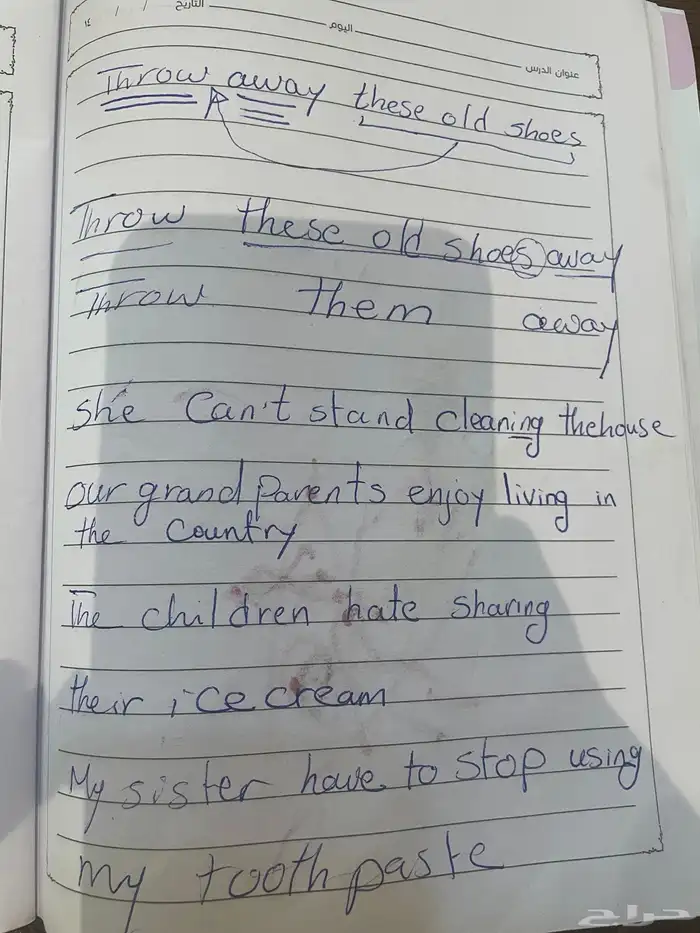 التاريخ / / ١٤
اليوم
عنوان الدرس
Throw away these old shoes
Throw these old shoes away
Throw them away
She Can't stand cleaning the house
our grand parents enjoy living in
the country
The children hate sharing
their ice cream
My sister have to stop using
my tooth paste
حراج